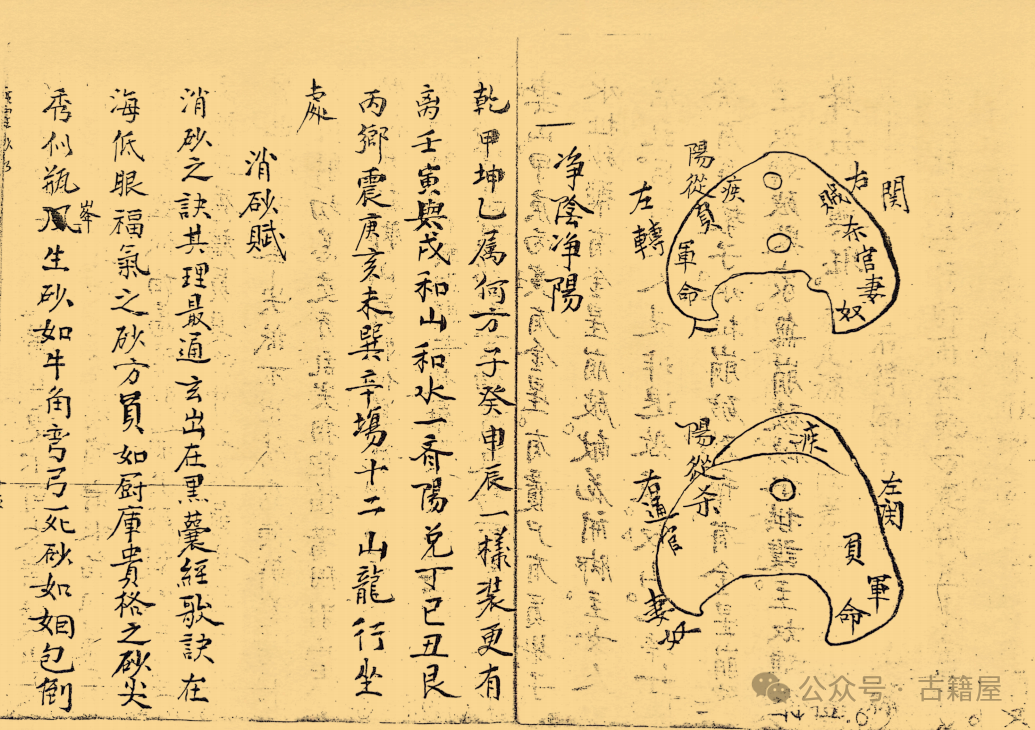 右関
陽從
疾
貧
軍
命
左轉
官
妻
奴
陽從
疾
杀
左関
官
妻
貧
軍
命
一净陰净陽
乾甲坤乙属何方子癸申辰一樣装更有
离壬寅與戌和山和水一斉陽兑丁巳丑艮
丙鄉震庚亥未巽辛塲十二山龍行坐
處
消砂賦
消砂之訣其理最通玄出在黒囊經歌訣在
海低眼福氣之砂方員如厨庫貴格之砂尖
秀似瓶峯生砂如牛角弯弓死砂如烟包倒
公众号·古籍屋